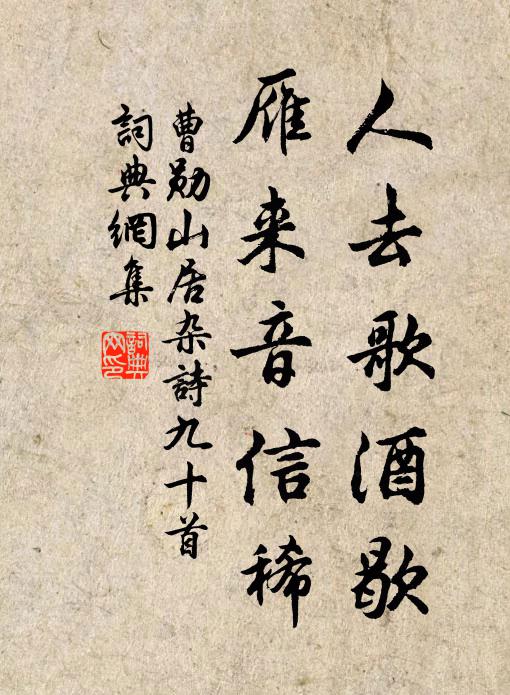 人去歌酒歇
雁来音信稀
曹勋山居杂詩九十首
詞典網集
詞典
网印